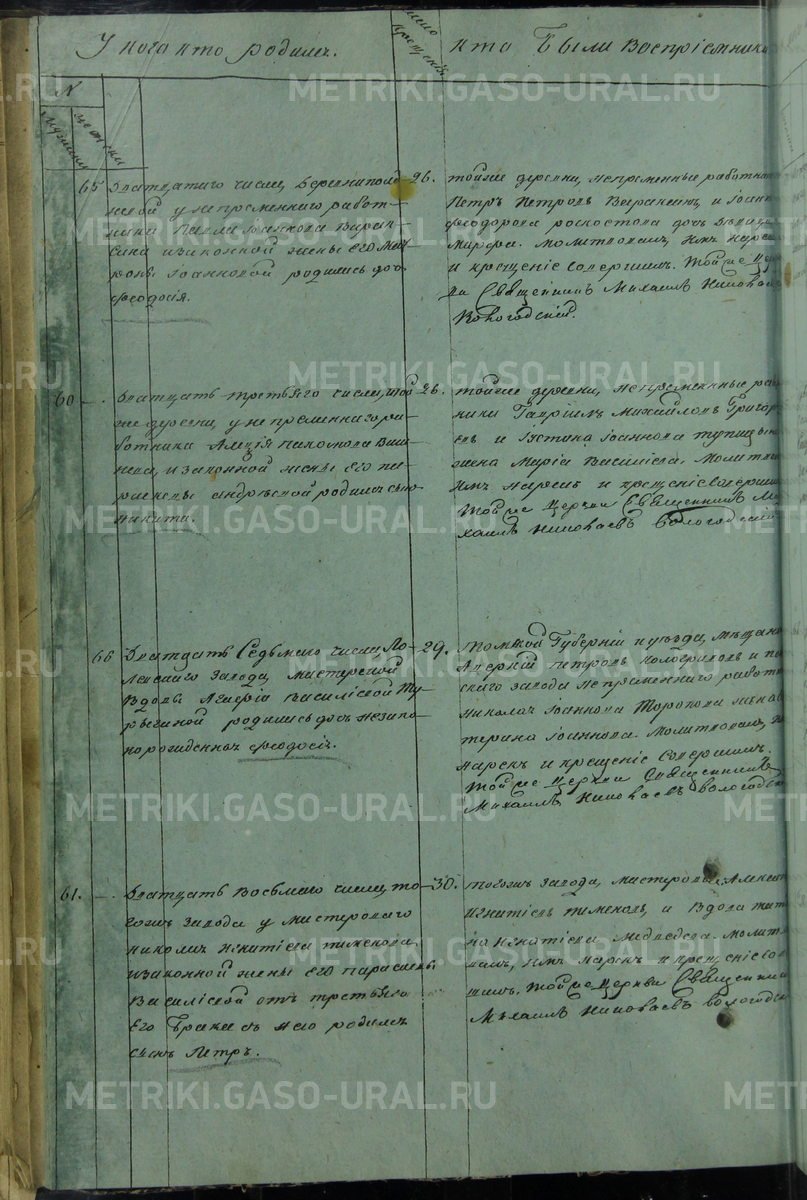 У кого кто родился.
Число крещенія
Кто Были Воспріемники
N
мужеска
женска
METRIKI.GASO-URAL.RU
65
Двадцатаго числа, Береиниполо-
новой у непременнаго работ-
ника Павла Іоаннова
изаконной жены его Мат-
роны Іоанновой родилась дочь
Феодосія.
26.
тойже деревни, непременные работни
Петръ Петровъ и Іоанна
Феодорова дочь девица
Марфа. Молитвовалъ, имя нарекъ
и крещеніе совершилъ. Тойже цер
ви Священникъ Михаилъ Николаевъ
Вологодскій.
60
Двадцать третьяго числа, той
же деревни, у непременнаго ра-
ботника Алексія Пахомова
изаконной жены его па-
раскевы андреевой родился сынъ
никита.
26.
тойже деревни, непременные рабо
ники Гавриилъ Михайловъ Григор
евъ и Іустина Іоаннова
жена Марія Василіева. Молитвов
имя нарекъ и крещеніе совершилъ
Той же церкви Священникъ Ми
хаилъ Николаевъ Вологодскій
66
Двадцать Седьмаго числа По-
левскаго завода, мастерской
вдовы Агафіи Василіевой Ту-
рыгиной родилась дочь незако-
норожденная Феодосія.
29.
Томской Губерніи и уезда, мещани
Аверкій Петровъ и по
скаго завода непременнаго работни
Николая Іоаннова Торопова жена
терина Іоаннова. Молитвовалъ,
нарекъ и крещеніе совершилъ.
Той же церкви Священникъ
Михаилъ Николаевъ Вологодскі
61.
Двадцать Восьмаго числа, то-
гожъ завода у мастероваго
николая игнатіева
изаконной жены его Параскевы
Василіевой отъ третьяго
его Брака съ нею родился
сынъ Петръ.
30.
тогожъ завода, мастеровые Алексан
игнатіевъ и вдова
игнатіева Медведева. Молит
валъ, имя нарекъ и крещеніе со
шилъ. Той же церкви Священни
Михаилъ Николаевъ Вологодск